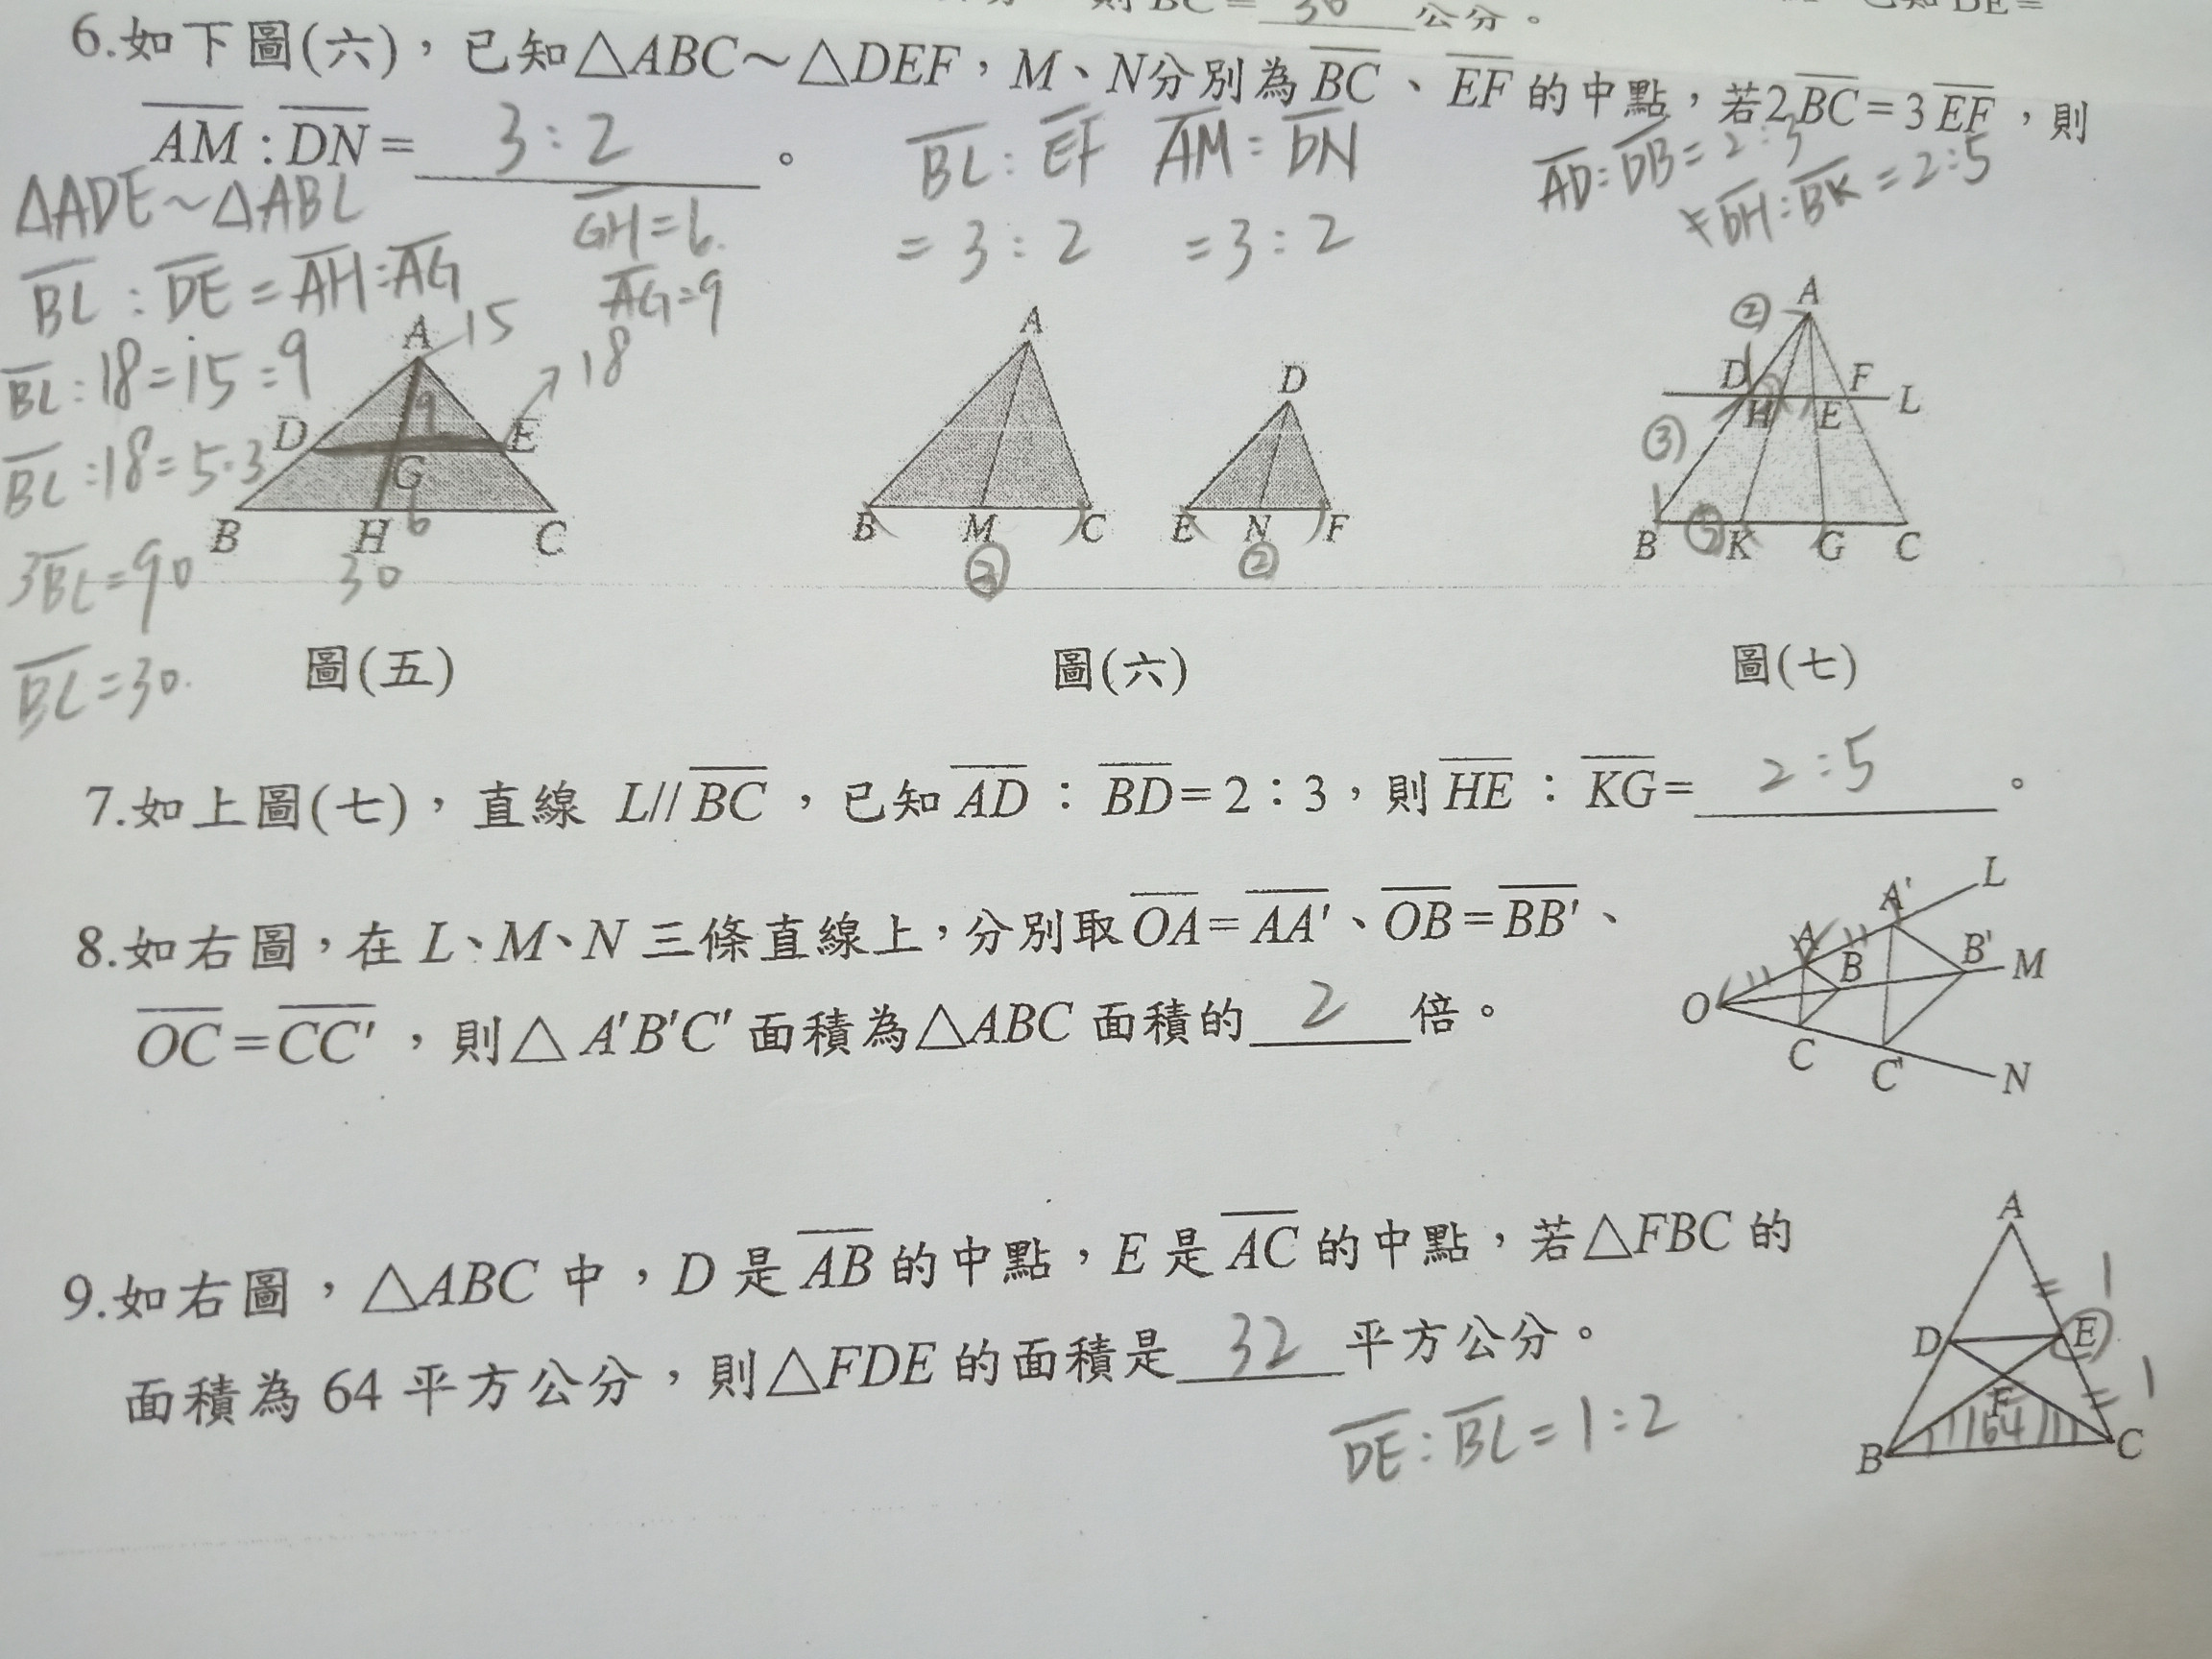 則BC= 30 公分。
已知DE=
6.如下圖(六),已知△ABC~△DEF,M、N分別為BC、EF的中點,若2BC=3EF,則
AM:DN= 3:2 。
BC:EF AM:DN
= 3:2 =3:2
AD:DB=2:3
DH:BK=2:5
△ADE~△ABC
BC:DE=AH:AG
BC:18=15:9
BC:18=5:3
3BC=90
BC=30.
GH=6.
AG=9
A 15
18
9
D E
G
6
B H C
30
A
D
B M C E N F
③ ②
② A
D F
H E L
③
B ⑤ K G C
圖(五) 圖(六) 圖(七)
7.如上圖(七),直線 L//BC,已知AD:BD=2:3,則HE:KG= 2:5 。
8.如右圖,在L、M、N三條直線上,分別取OA=AA'、OB=BB'、
OC=CC',則△A'B'C'面積為△ABC面積的 2 倍。
A' L
A B B' M
O
C C' N
9.如右圖,△ABC中,D是AB的中點,E是AC的中點,若△FBC的
面積為64平方公分,則△FDE的面積是 32 平方公分。
DE:BC=1:2
A
1
D E
F 1
64
B C